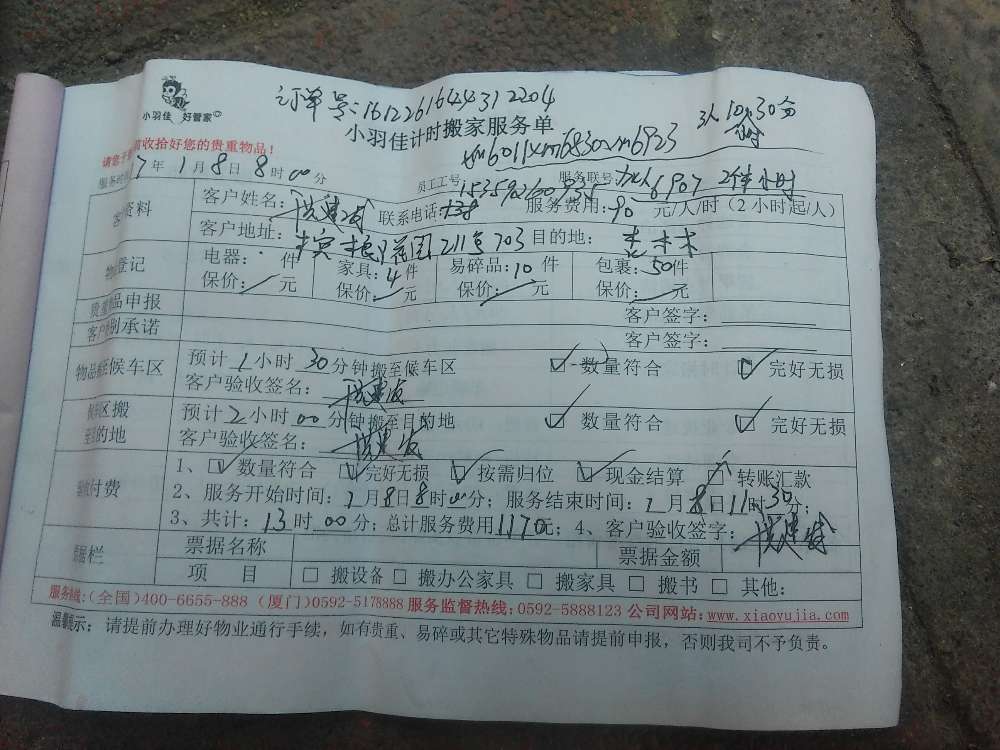 订单号:161226164431 2204
小羽佳 好管家
小羽佳计时搬家服务单
3人10.30分
收拾好您的贵重物品!
xm6011xm6830xm6923
7年1月8日8时00分
员工工号
服务联号 加人6907 2件小时
客户姓名:
联系电话:
服务费用:90元/人/时(2小时起/人)
客户地址: 211号703 目的地:
电器: 件 家具:4件 易碎品:10件 包裹:50件
保价: 元 保价: 元 保价: 元 保价: 元
品申报 客户签字:
客户 别承诺 客户签字:
物品 至候车区 预计1小时30分钟搬至候车区 数量符合 完好无损
客户验收签名:
区搬至目的地 预计2小时00分钟搬至目的地 数量符合 完好无损
客户验收签名:
付费 1、数量符合 完好无损 按需归位 现金结算 转账汇款
2、服务开始时间:1月8日8时00分;服务结束时间:1月8日11时30分;
3、共计:13时00分;总计服务费用1170元;4、客户验收签字:
据栏 票据名称 票据金额
项 目 □ 搬设备 □ 搬办公家具 □ 搬家具 □ 搬书 □ 其他:
服务热线:(全国)400-6655-888 (厦门)0592-5178888 服务监督热线:0592-5888123 公司网站:www.xiaoyujia.com
温馨提示:请提前办理好物业通行手续,如有贵重、易碎或其它特殊物品请提前申报,否则我司不予负责。